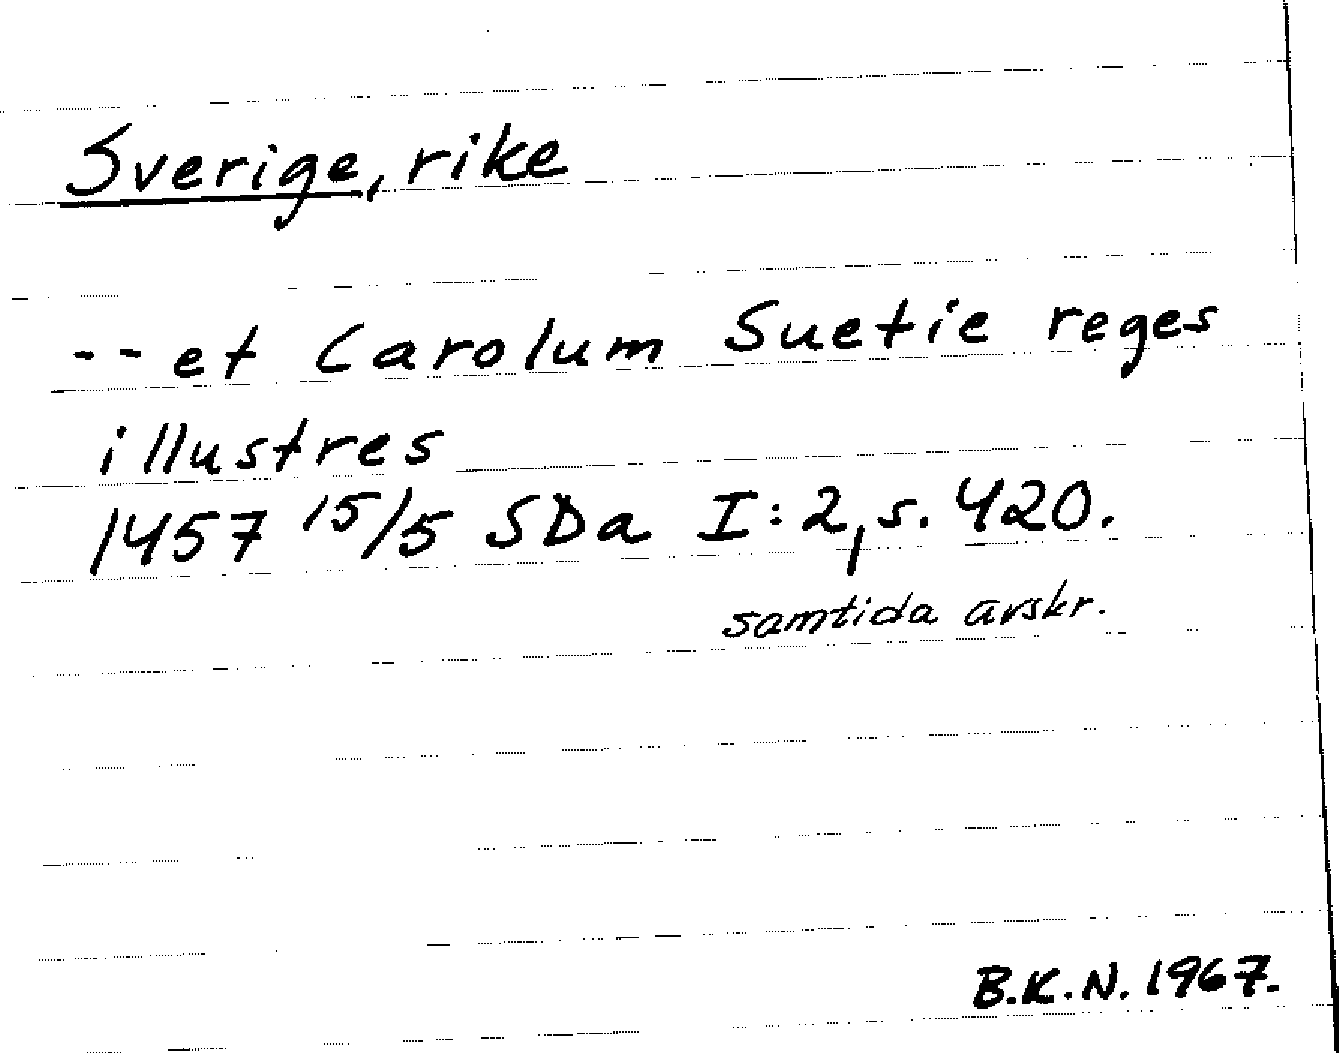 Sverige, rike
-- et Carolum Suetie reges
illustres
1457 15/5 SDa I:2, s. 420.
samtida avskr.
B.K.N. 1967.